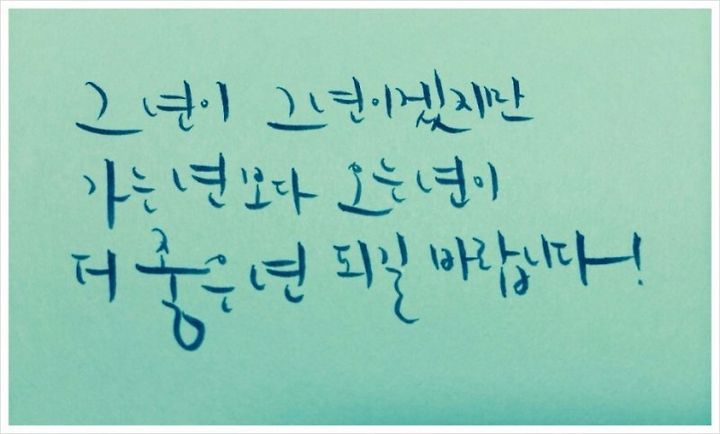 그 년이 그 년이겠지만
가는 년보다 오는 년이
더 좋은 년 되길 바랍니다-!